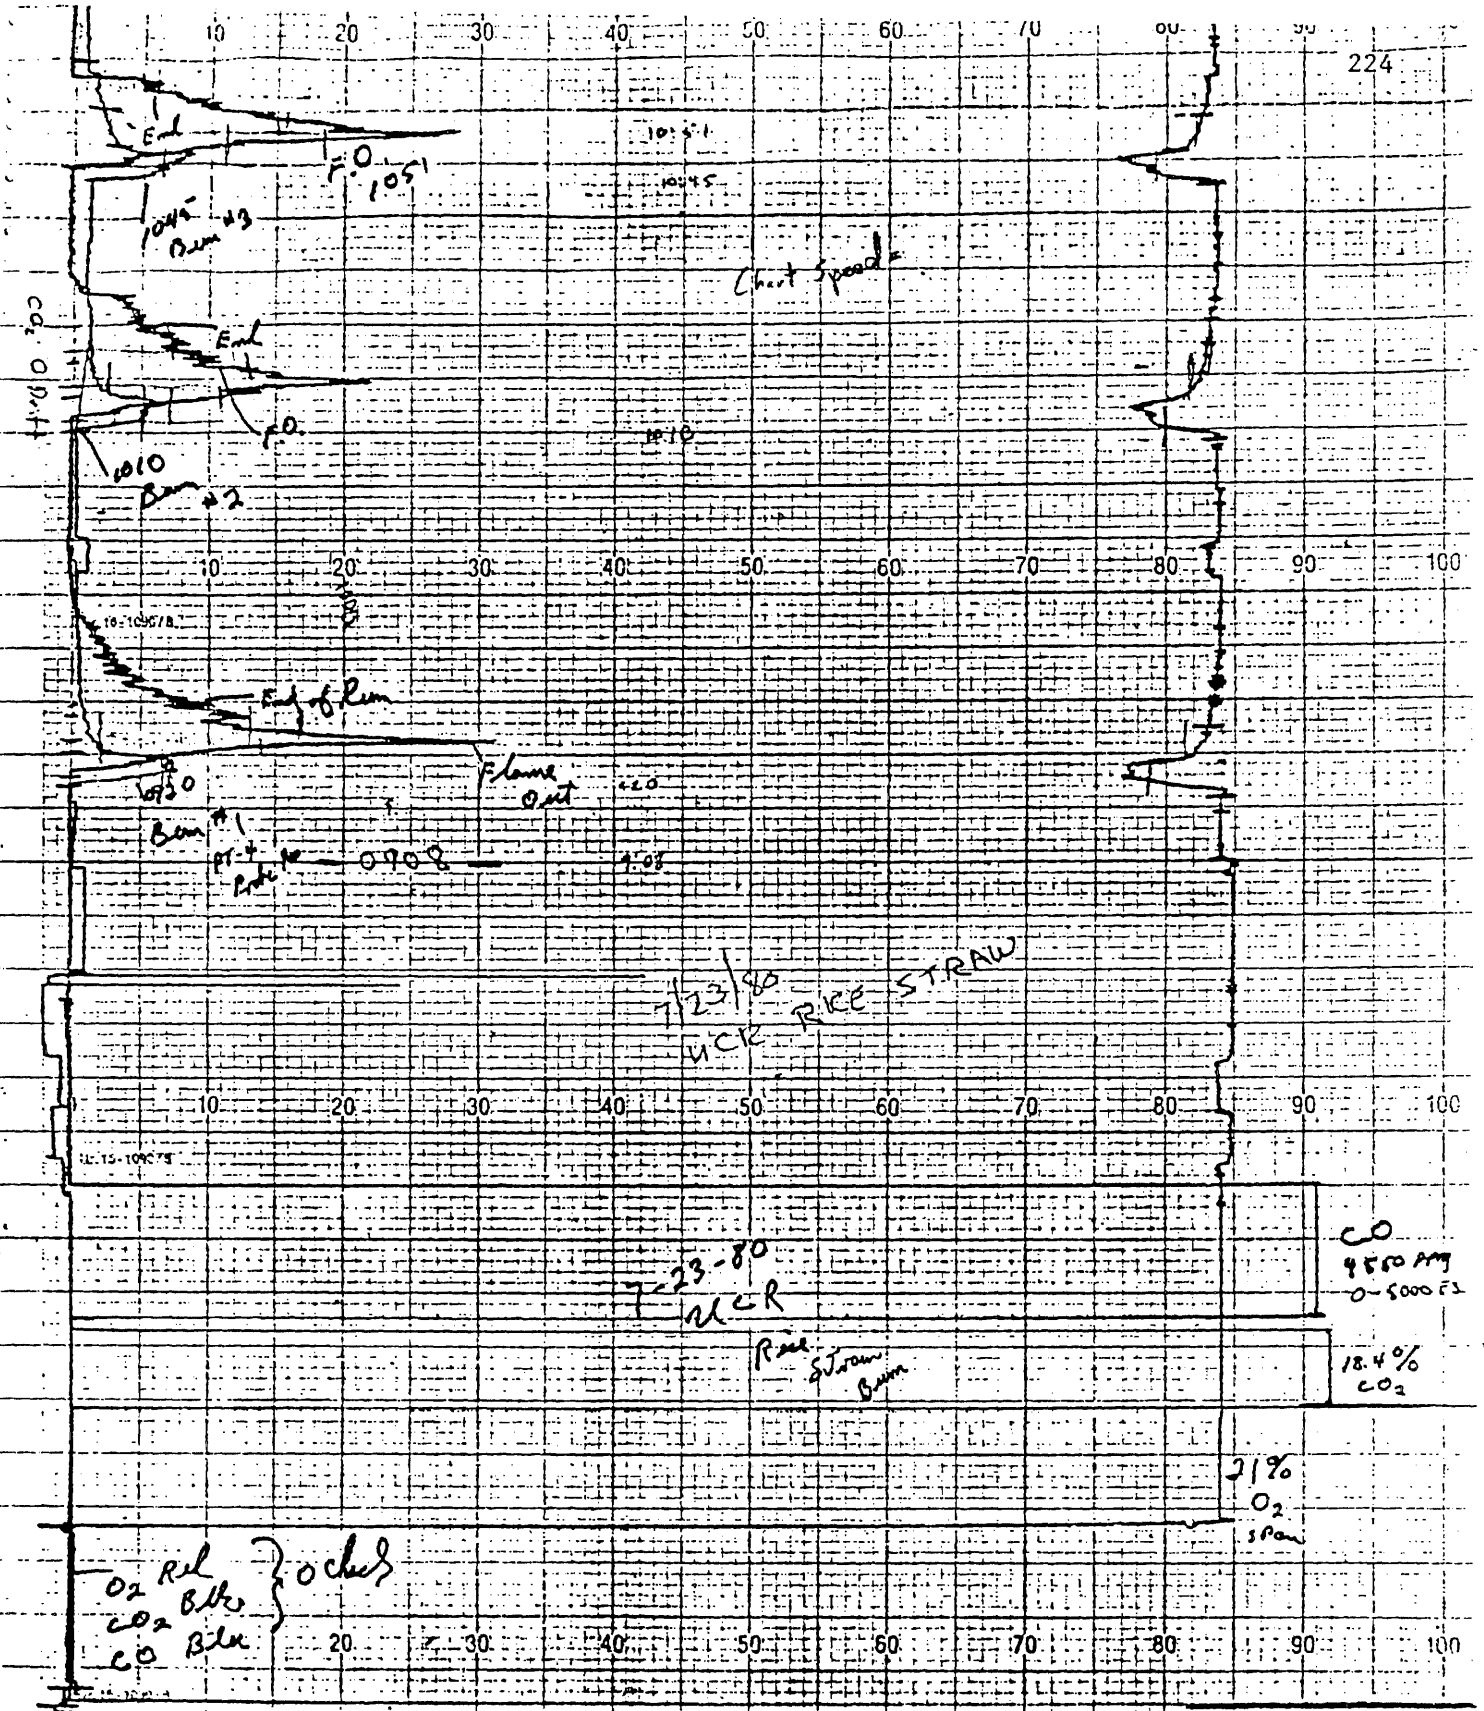 10 20 30 40 50 60 70 80 90
224
End
F.O.
1051
10:51
10:45
1045
Burn #3
Chart Speed =
CO2 0 Drift
End
F.O.
10:10
1010
Burn #2
10 20 30 40 50 60 70 80 90 100
End of Run
Flame
Out
0920
Burn #1
Probe
0908
9:08
7/23/80
UCR RICE STRAW
10 20 30 40 50 60 70 80 90 100
CO
0-5000
7-23-80
UCR
Rice
Straw
Burn
18.4%
CO2
21%
O2
span
O2 Red
CO2 Blue
CO Blk
0 check
20 30 40 50 60 70 80 90 100